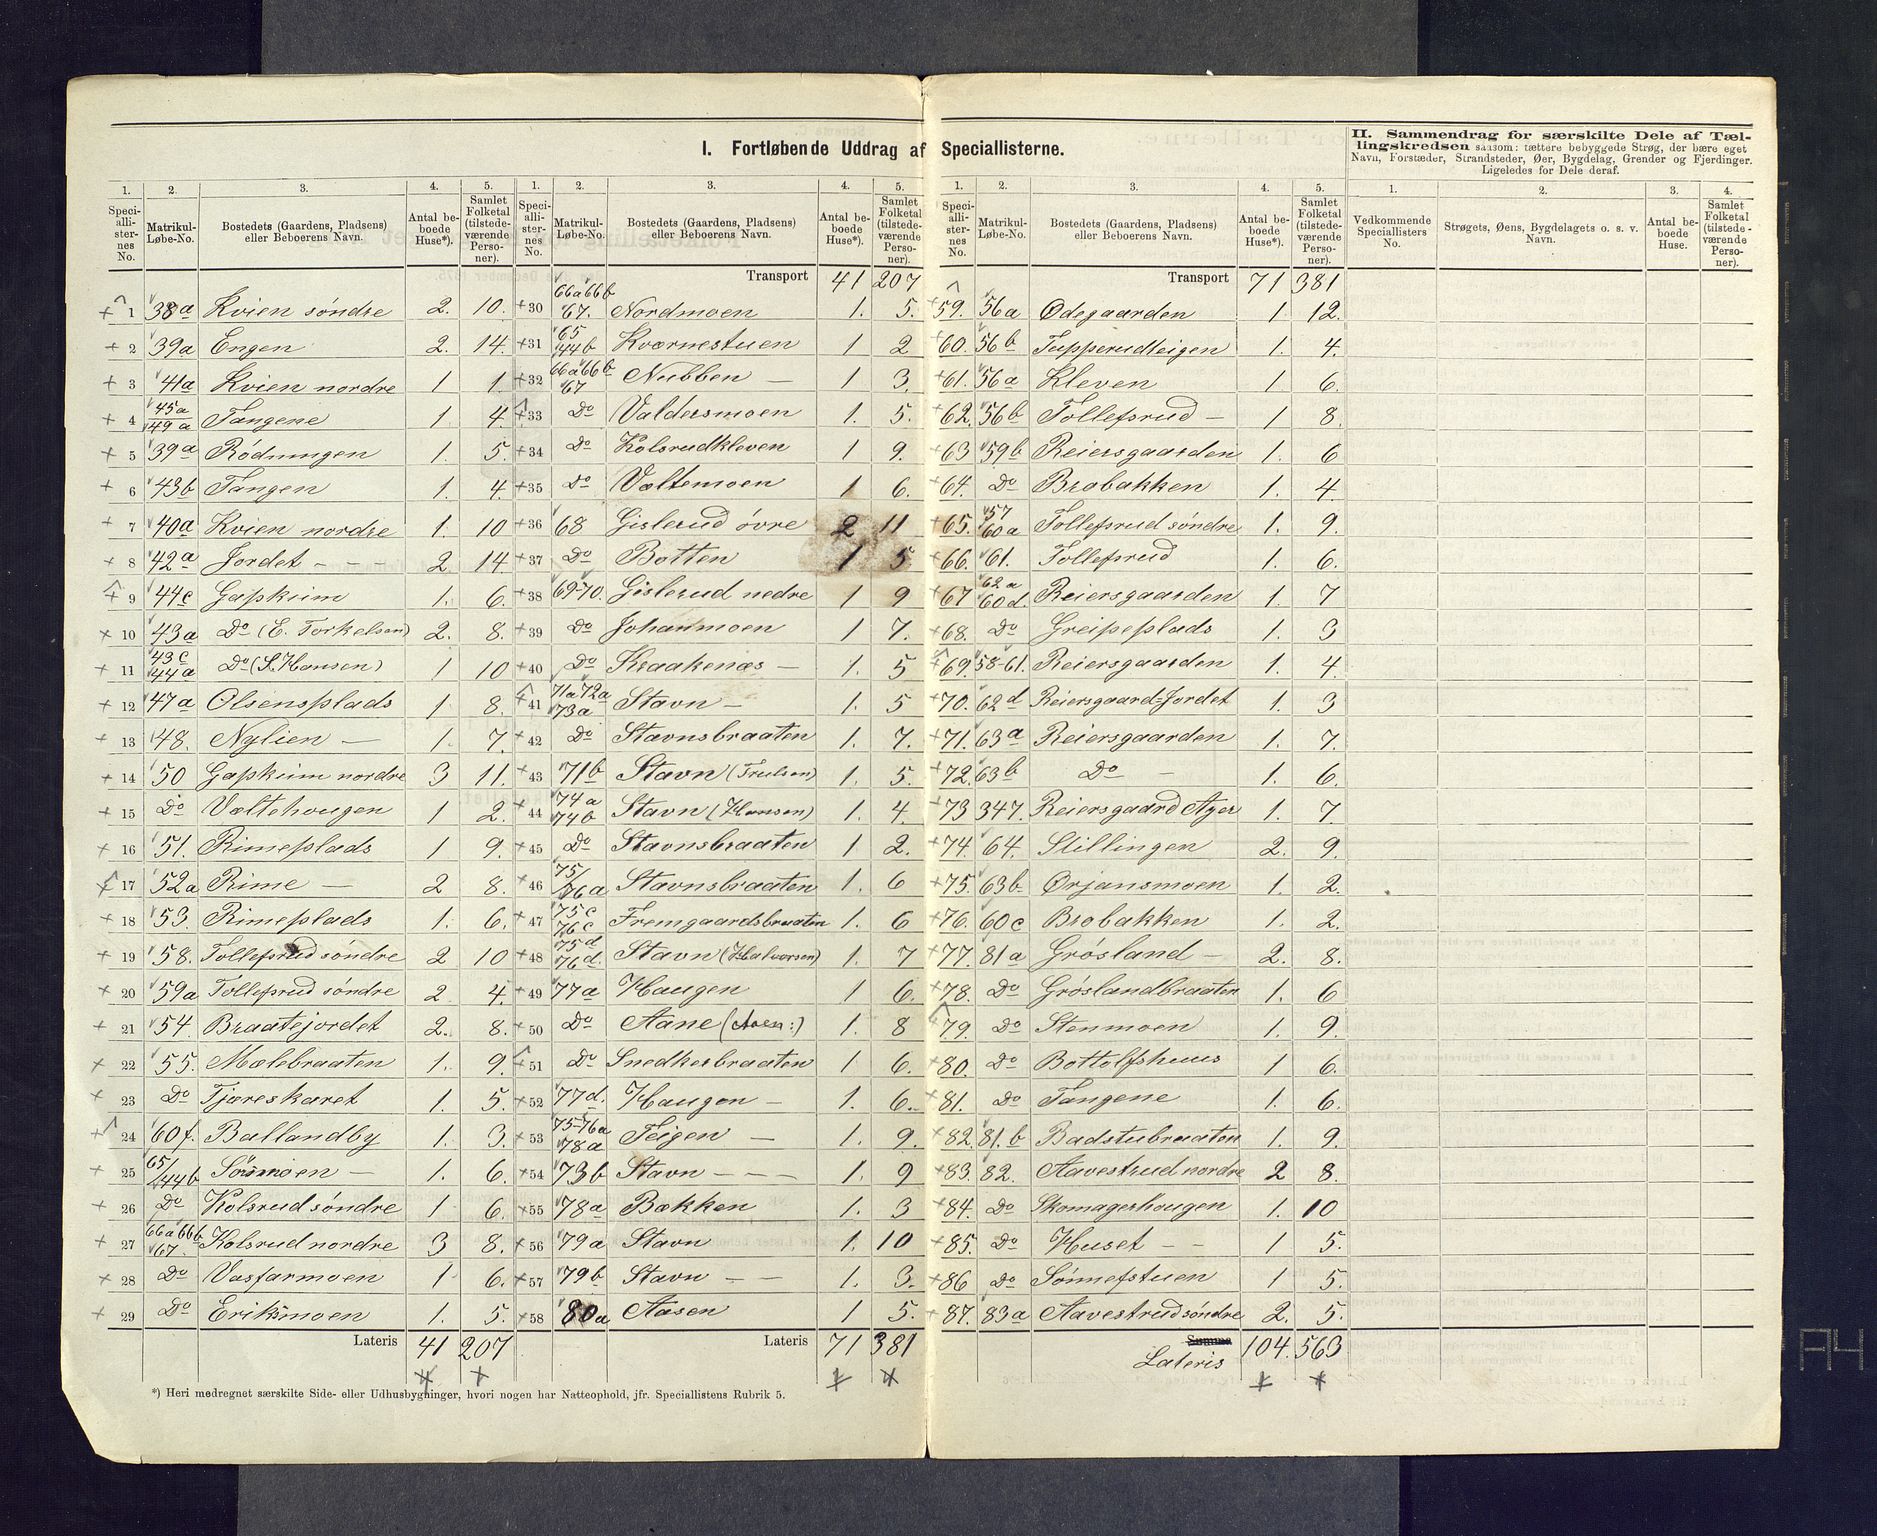 I. Fortløbende Uddrag af Speciallisterne.
II. Sammendrag for særskilte Dele af Tællingskredsen saasom: tættere bebyggede Strøg, der bære eget
Navn, Forstæder, Strandsteder, Øer, Bygdelag, Grender og Fjerdinger.
Ligeledes for Dele deraf.
1. 2. 3. 4. 5.
Speciallisternes No. Matrikul-Løbe-No. Bostedets (Gaardens, Pladsens) eller Beboerens Navn. Antal beboede Huse*). Samlet Folketal (tilstedeværende Personer).
1 38a Kvien søndre 2. 10.
2 39a Engen 2. 14.
3 41a Kvien nordre 1 1.
4 45a 49a Tangene 1. 4.
5 39a Rødningen 1. 5.
6 43b Tangen 1. 4
7 40a Kvien nordre 1. 10
8 42a Jordet - - - 2. 14.
9 44c Gapkuim 1. 6.
10 43a Do (E. Torkelsen) 2. 8.
11 43c 44a Do (S. Hansen) 1 10
12 47a Olsensplads 1 8.
13 48. Nylien - 1. 7.
14 50 Gapkuim nordre 3 11.
15 Do Væltehougen 1 2.
16 51. Rimeplads 1 9.
17 52a Rime - 2 8.
18 53. Rimeplads 1. 6.
19 58. Tollefsrud søndre 2 10
20 59a Tollefsrud søndre 2 4.
21 54. Braatejordet 2. 8.
22 55. Mælebraaten 1. 9.
23 Do Tjæreskaret 1. 5.
24 60f. Ballandby 1. 3.
25 65/44b Sørmoen - 1. 6.
26 Do Kolsrud søndre 1 6.
27 66a 66b 67. Kolsrud nordre 3 8.
28 Do Vasfarmoen 1 6.
29 Do Eriksmoen 1. 5.
Lateris 41 207
*) Heri medregnet særskilte Side- eller Udhusbygninger, hvori nogen har Natteophold, jfr. Speciallistens Rubrik 5.
1. 2. 3. 4. 5.
Speciallisternes No. Matrikul-Løbe-No. Bostedets (Gaardens, Pladsens) eller Beboerens Navn. Antal beboede Huse*). Samlet Folketal (tilstedeværende Personer).
Transport 41 207
30 66a 66b 67. Nordmoen 1. 5.
31 65 44b Kværnestuen 1 2
32 66a 66b 67 Nubben - 1 3.
33 Do Valdersmoen 1. 5.
34 Do Kolsrudkleven 1 9.
35 Do Væltemoen 1 6.
36 68 Gislerud øvre 2 11
37 Do Botten 1 5
38 69-70. Gislerud nedre 1 9
39 Do Johanmoen 1 7.
40 Do Kraakenæs - 1. 5
41 71a 72a 73a Stavn - 1. 5
42 Do Stavnsbraaten 1. 7.
43 71b Stavn (Trulsen) 1. 5.
44 74a 74b Stavn (Hansen) 1. 4.
45 Do Stavnsbraaten 1 2.
46 75/76a Stavnsbraaten 1. 6
47 75c 76c Fremgaardsbraaten 1. 6
48 75d 76d Stavn (Halvorsen) 1. 7
49 77a Haugen 1 6.
50 Do Aane (Aaen:) 1. 8
51 Do Snedkerbraaten 1 6.
52 77d. Haugen - 1. 6.
53 75-76a 78a Teigen - 1. 9.
54 73b Stavn - - - 1. 9
55 78a Bækken 1. 3
56 79a Stavn 1. 10
57 79b Stavn - - 1. 3.
58 80a Aasen 1 5.
Lateris 71 381
1. 2. 3. 4. 5.
Speciallisternes No. Matrikul-Løbe-No. Bostedets (Gaardens, Pladsens) eller Beboerens Navn. Antal beboede Huse*). Samlet Folketal (tilstedeværende Personer).
Transport 71 381
59. 56a Ødegaarden 1 12.
60. 56b Tupperudteigen 1. 4.
61. 56a Kleven 1 6.
62. 56b Tollefsrud - 1 8.
63 59b Reiersgaarden 1. 6
64. Do Brobakken 1. 4
65. 57 60a Tollefsrud søndre 1. 9.
66. 61. Tollefsrud 1. 6.
67 62a 60d. Reiersgaarden 1. 7
68. Do Greipeplads 1. 3
69. 58-61. Reiersgaarden 1. 4
70. 62d Reiersgaard-Jordet 1. 3
71. 63a Reiersgaarden 1. 7.
72. 63b Do - 1. 6.
73 347. Reiersgaard Ager 1. 7
74. 64. Stillingen 2. 9.
75. 63b Ørjansmoen 1. 2.
76. 60c Brobakken 1. 2.
77. 81a Grøsland - 2. 8.
78. Do Grøslandbraaten 1. 6
79. Do Stenmoen 1. 9.
80. Do Bottolfshuus 1 6.
81. Do Tangene 1. 6.
82. 81.b Badstubraaten 1. 9.
83. 82. Aavestrud nordre 2 8.
84. Do Skomagerhougen 1. 10
85. Do Huset - - 1 5.
86 Do Sønnefstuen 1 5.
87. 83a Aavestrud søndre 2. 5.
Summa 104. 563
Lateris
1. 2. 3. 4.
Vedkommende Speciallisters No. Strøgets, Øens, Bygdelagets o. s. v. Navn. Antal beboede Huse. Samlet Folketal (tilstedeværende Personer).
A4